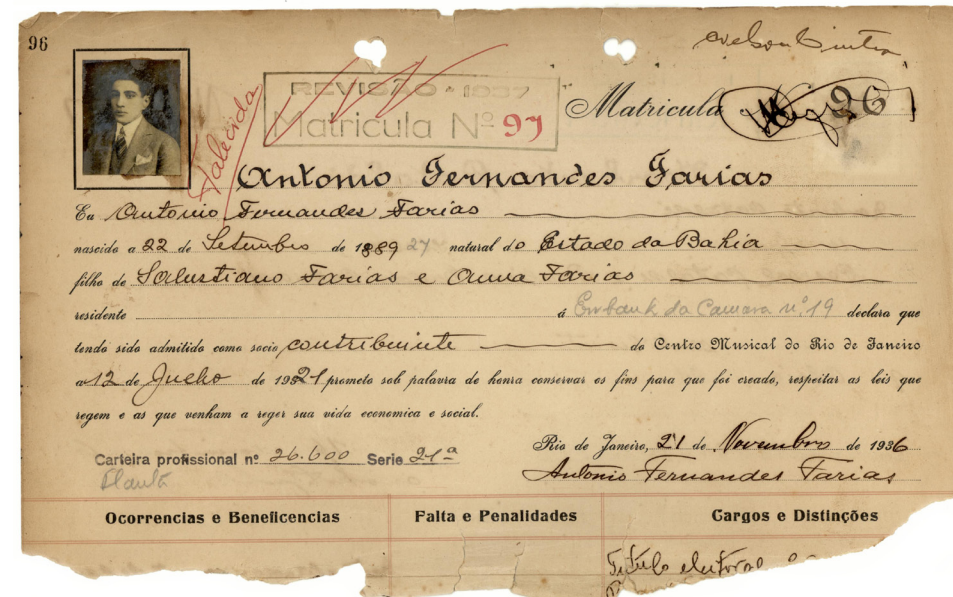 96
REVISÃO - 1937
Matricula Nº 97
Falecido
Matricula 96
Antonio Fernandes Farias
Eu Antonio Fernandes Farias
nascido a 22 de Setembro de 1889 27 natural do Estado da Bahia
filho de Salustiano Farias e Anna Farias
residente á Eubank da Camara nº 19 declara que
tendo sido admitido como socio contribuinte do Centro Musical do Rio de Janeiro
a 12 de Julho de 1921 prometo sob palavra de honra conservar os fins para que foi creado, respeitar as leis que
regem e as que venham a reger sua vida economica e social.
Rio de Janeiro, 21 de Novembro de 1936
Carteira profissional nº 26.600 Serie 21ª
Antonio Fernandes Farias
Flauta
Ocorrencias e Beneficencias Falta e Penalidades Cargos e Distinções
Titulo eleitoral